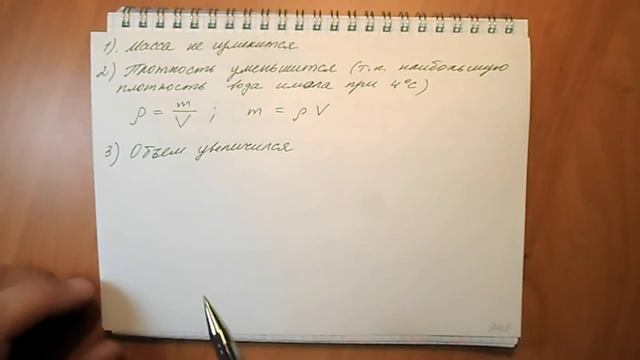 1). Масса не изменится
2) Плотность уменьшится (т.к. наибольшую
плотность вода имела при 4°С)
ρ = m/V ; m = ρV
3) Объем увеличился